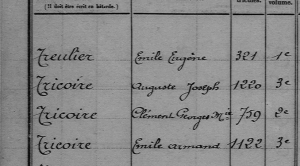 (Il doit être écrit en bâtarde.)
volume.
Treulier Emile Eugène 321 1e
Tricoire Auguste Joseph 1220 3e
Tricoire Clément Georges Mie 759 2e
Tricoire Emile Armand 1122 3e